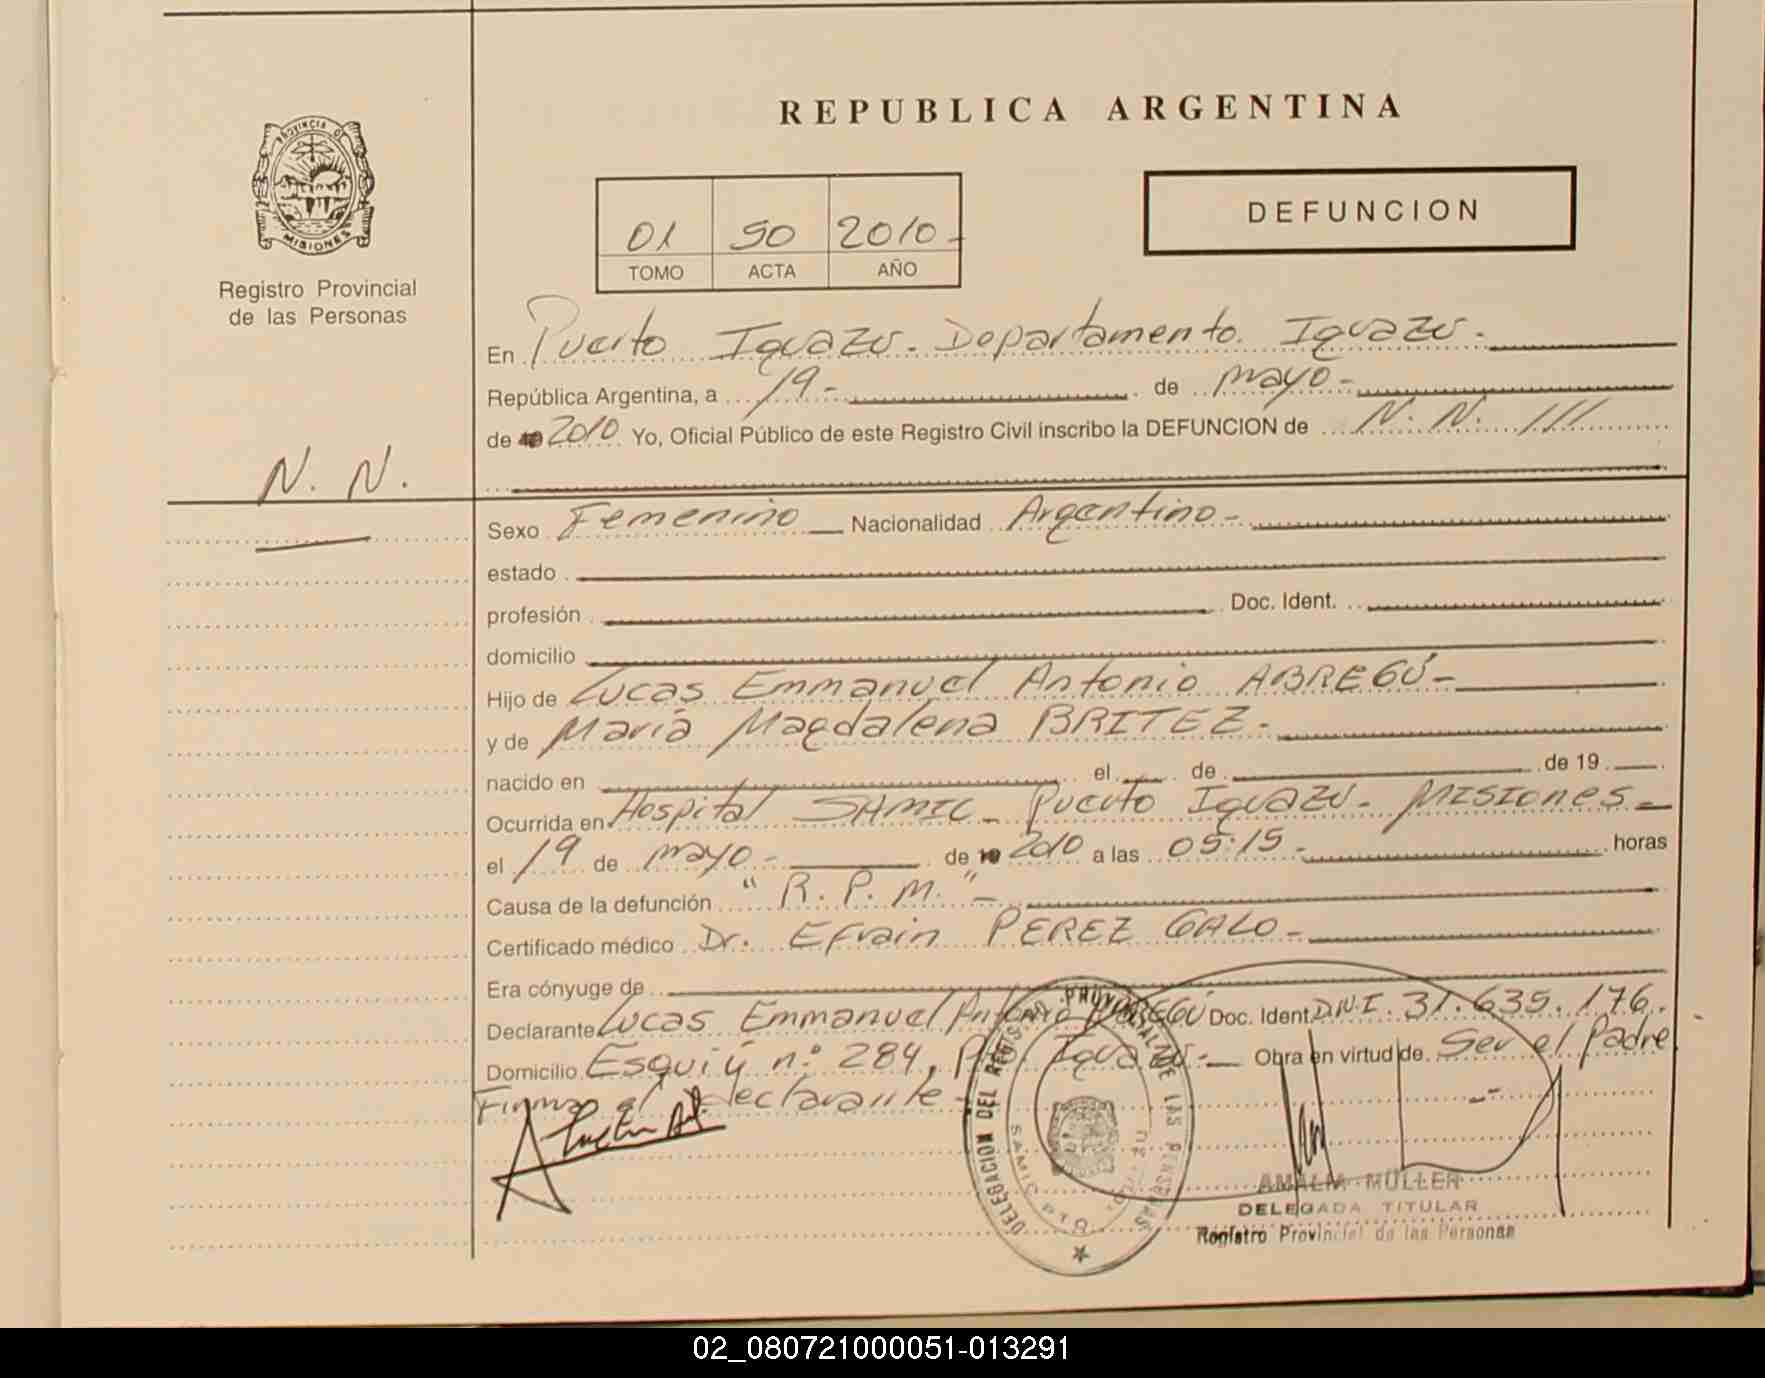 REPUBLICA ARGENTINA
PROVINCIA DE
MISIONES
Registro Provincial
de las Personas
01 50 2010-
TOMO ACTA AÑO
DEFUNCION
N. N.
En Puerto Iguazú. Departamento. Iguazú.-
República Argentina, a 19- de mayo-
de 2010 Yo, Oficial Público de este Registro Civil inscribo la DEFUNCION de N. N. ///
Sexo Femenino Nacionalidad Argentino-
estado
profesión Doc. Ident.
domicilio
Hijo de Lucas Emmanuel Antonio ABREGÚ-
y de María Magdalena BRITEZ-
nacido en el de de 19
Ocurrida en Hospital SAMIC- Puerto Iguazú- MISIONES-
el 19 de mayo- de 2010 a las 05:15- horas
Causa de la defunción "R. P. M."-
Certificado médico Dr. Efrain PEREZ GALO-
Era cónyuge de
Declarante Lucas Emmanuel Antonio ABREGÚ Doc. Ident. D.N.I. 31.635.176.
Domicilio Esquiú n° 284, Pto. Iguazú- Obra en virtud de Ser el Padre
Firma el declarante-
DELEGACION DEL REGISTRO PROVINCIAL DE LAS PERSONAS
SAMIC PTO
AMALIA MÜLLER
DELEGADA TITULAR
Registro Provincial de las Personas
02_080721000051-013291